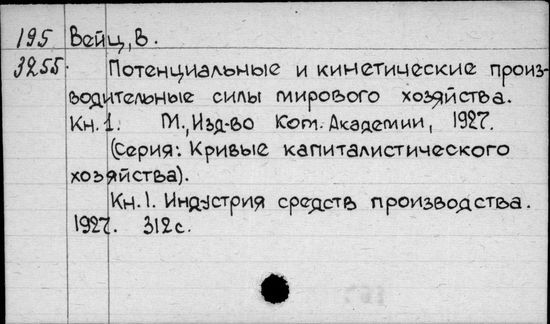 195 Вейц, В.
3255. Потенциальные и кинетические произ-
водительные силы мирового хозяйства.
Кн. 1. М., Изд-во Ком. Академии, 1927.
(Серия: Кривые капиталистического
хозяйства).
Кн. 1. Индустрия средств производства.
1927. 312 с.